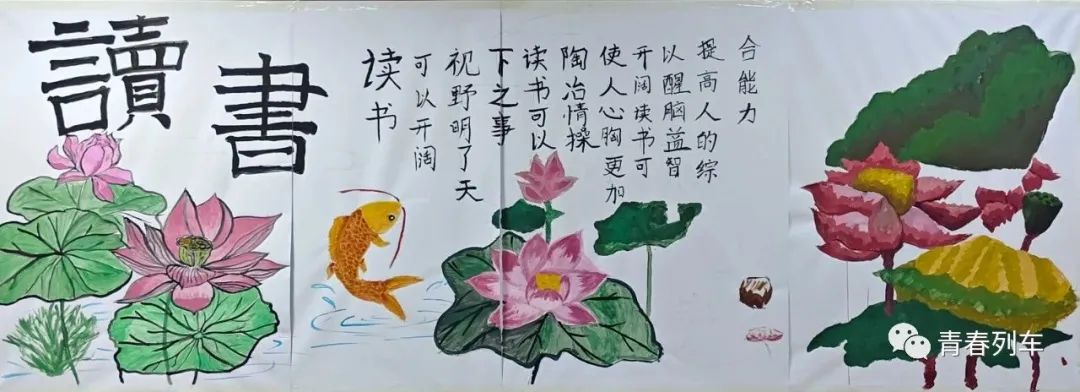 讀書
读书
可以开阔
视野明了天
下之事
读书可以
陶冶情操
使人心胸更加
开阔读书可
以醒脑益智
提高人的综
合能力
青春列车